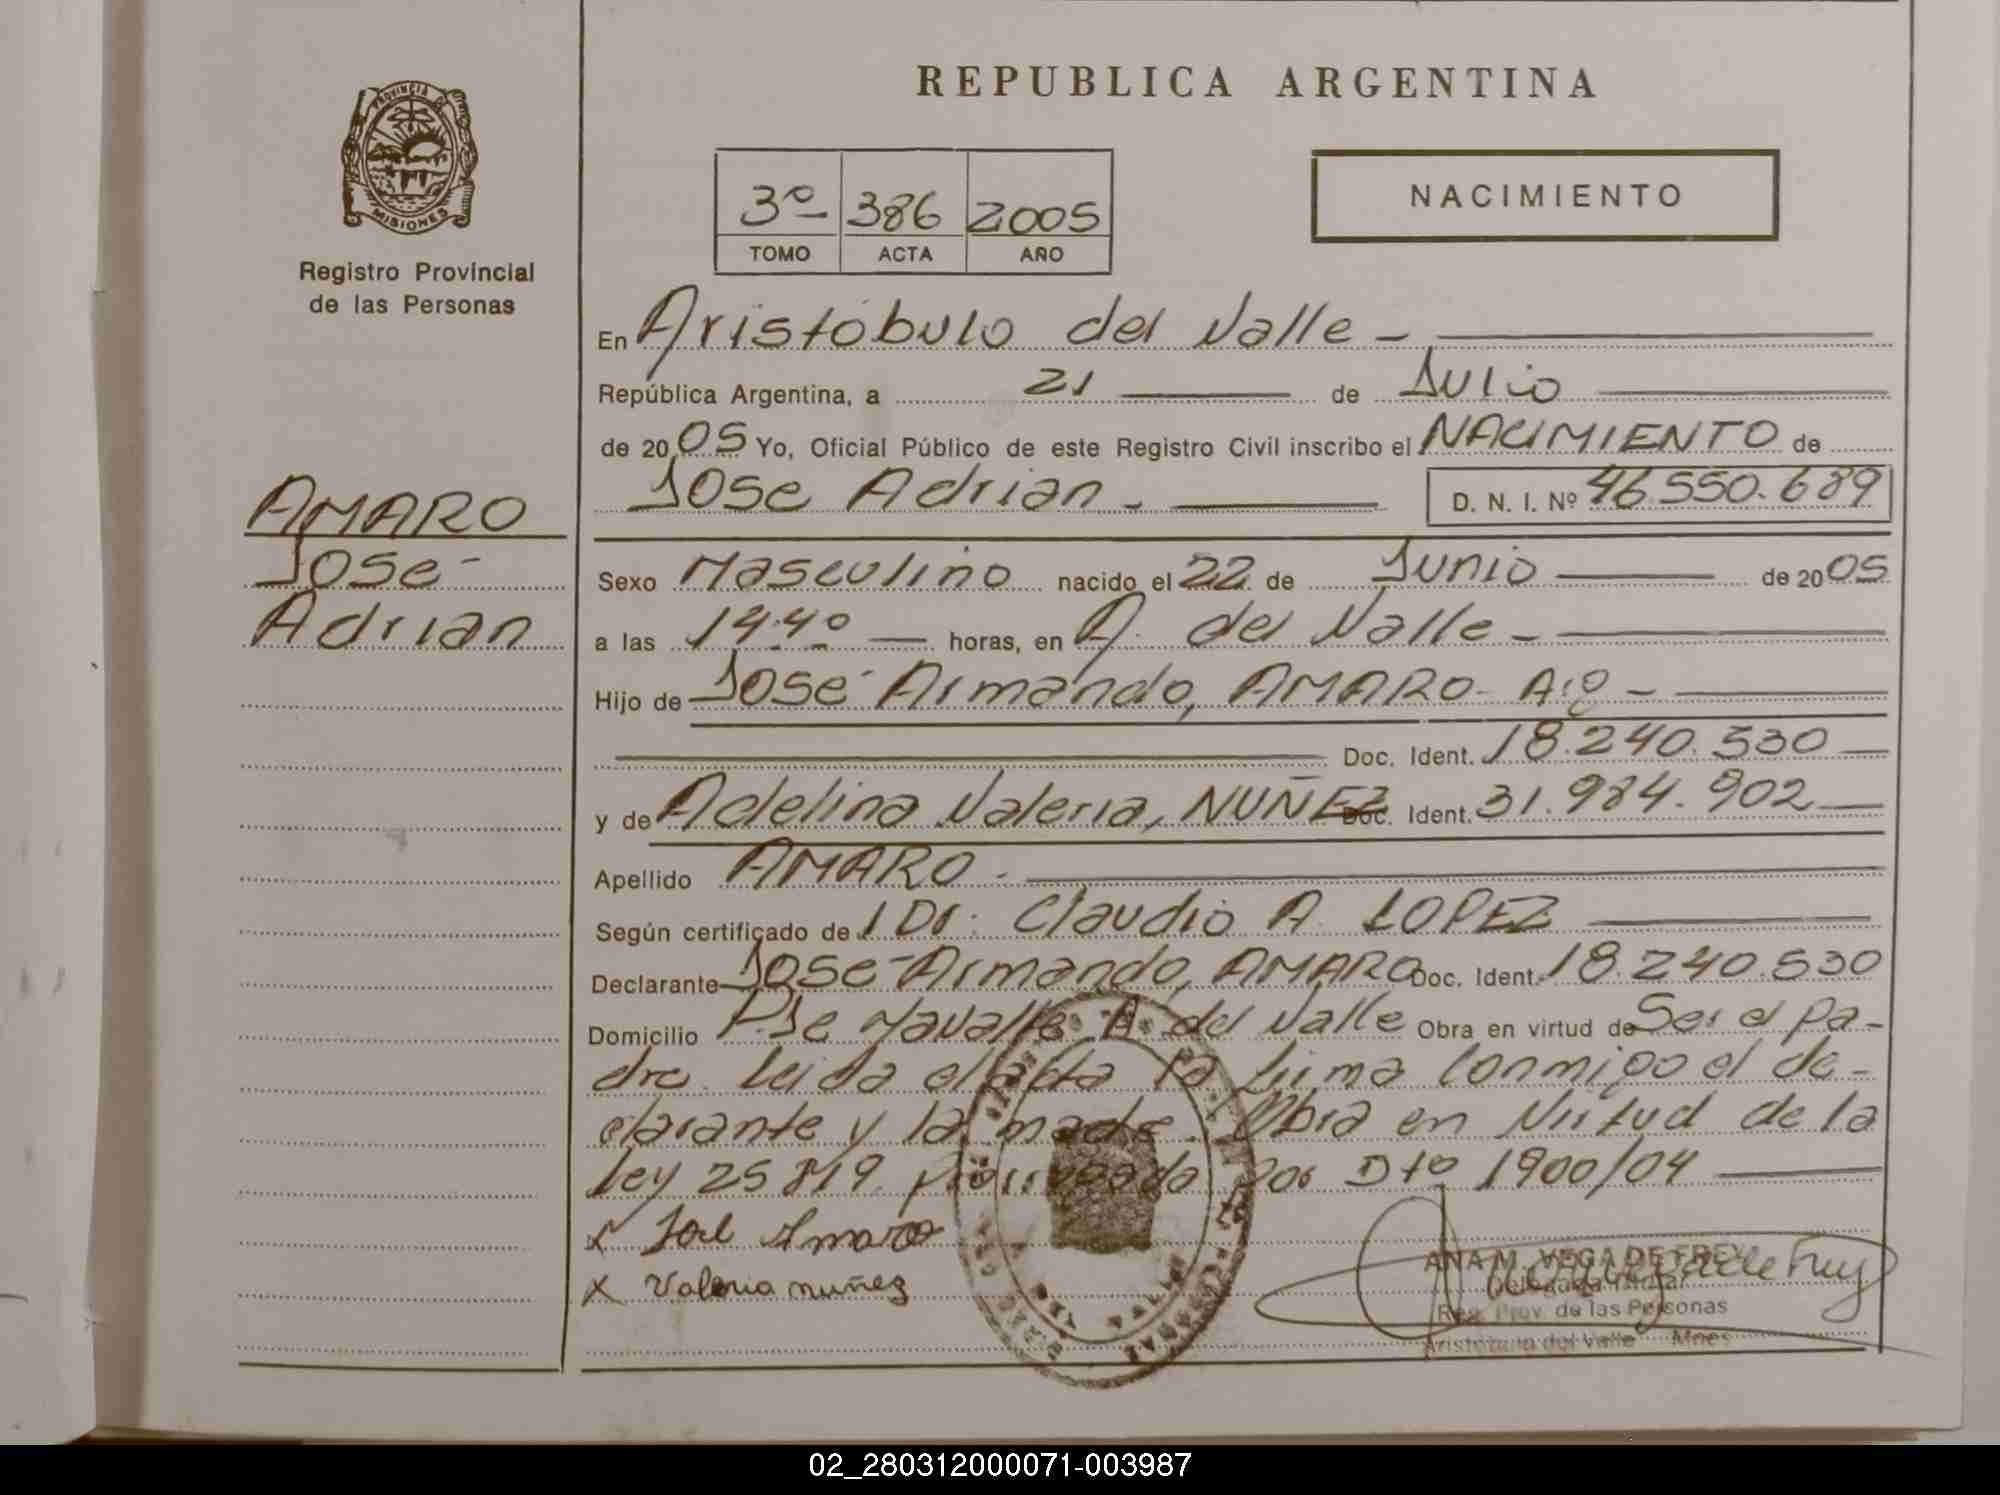 REPUBLICA ARGENTINA
PROVINCIA DE
MISIONES
Registro Provincial
de las Personas
3º 386 2005
TOMO ACTA AÑO
NACIMIENTO
En Aristóbulo del Valle -
República Argentina, a 21 de Julio
de 2005 Yo, Oficial Público de este Registro Civil inscribo el NACIMIENTO de
Jose Adrian - D. N. I. Nº 46.550.689
AMARO
José
Adrian
Sexo Masculino nacido el 22 de Junio de 2005
a las 14.40 horas, en A. del Valle -
Hijo de José Armando, AMARO - Arg -
Doc. Ident. 18.240.530
y de Adelina Valeria, NUÑEZ Doc. Ident. 31.984.902
Apellido AMARO -
Según certificado de l Dr. Claudio A. LOPEZ
Declarante José Armando, AMARO Doc. Ident. 18.240.530
Domicilio A. del Valle Obra en virtud de Ser el pa-
dre. Leida el acta la firma conmigo el de-
clarante y la madre. Obra en Virtud de la
Ley 25819 prorrogada por Dto 1900/04
x José Amaro
x Valeria nuñez
ANA M. VEGA DE FREY
Delegada Titular
Reg. Prov. de las Personas
Aristóbulo del Valle Mnes
02_280312000071-003987